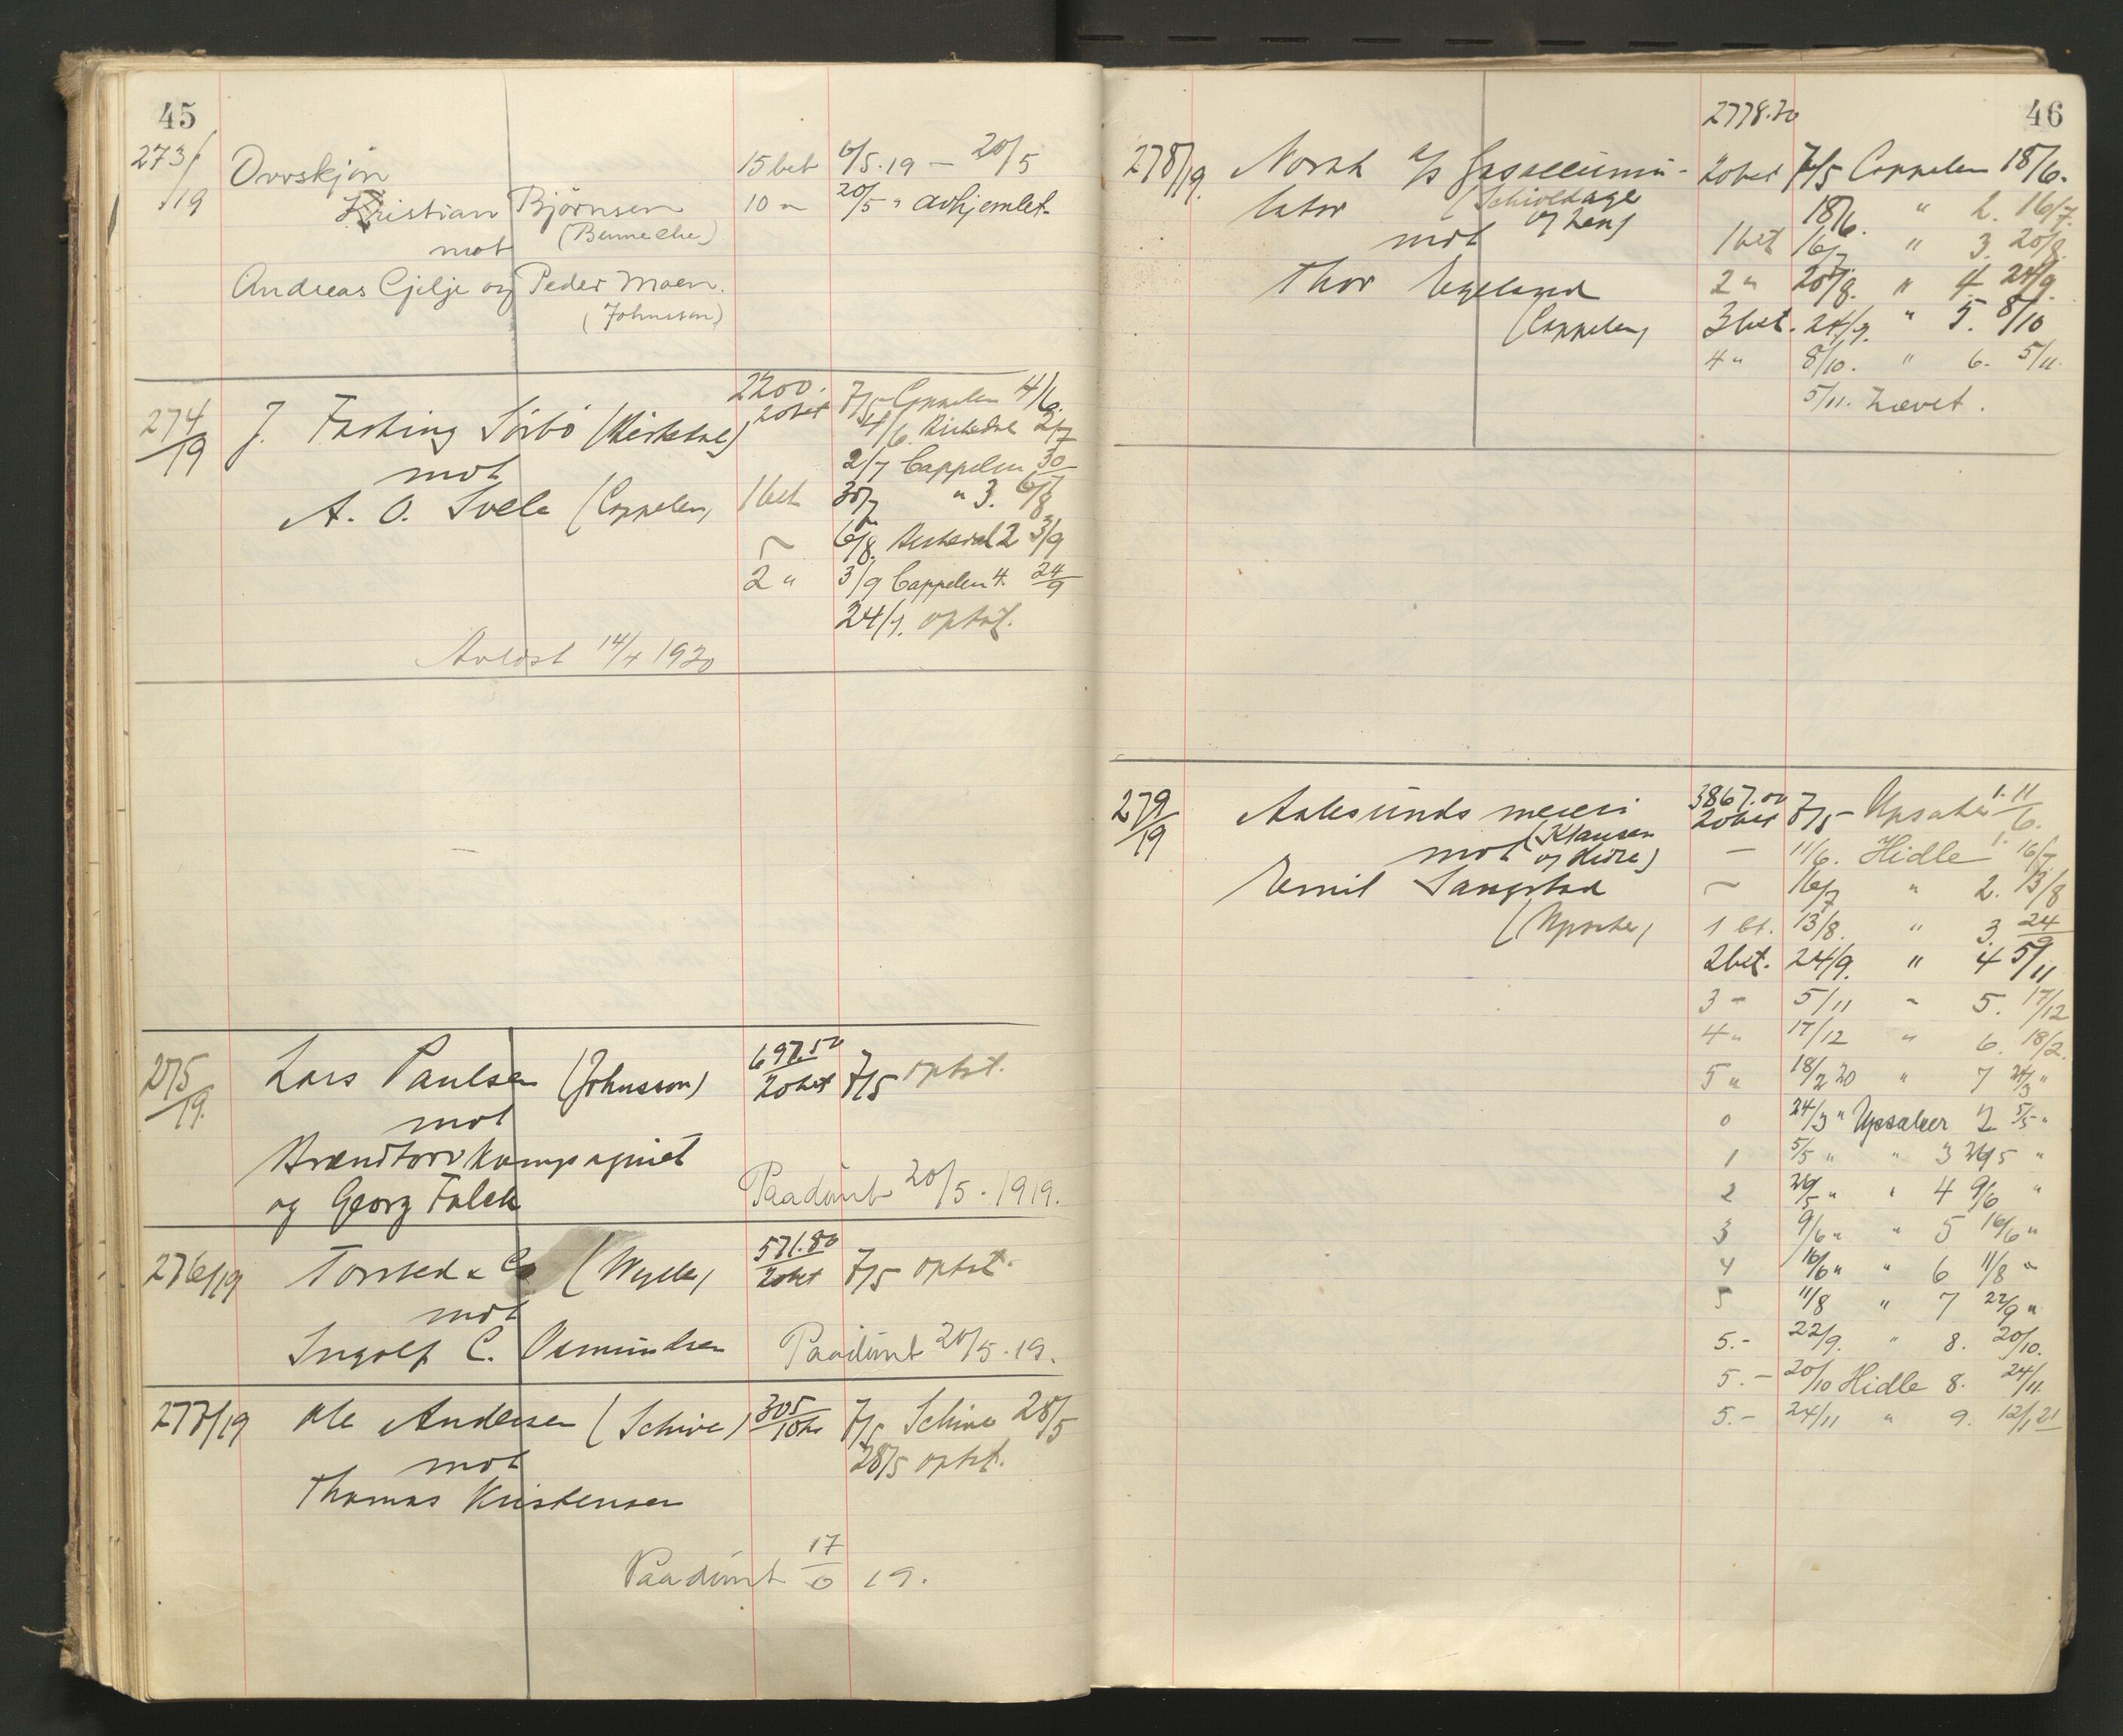 45
273/19 Ovrskjøn 15 bet 6/5.19 — 20/5
Kristian Bjørnsen 10 " 20/5 " avhjemlet.
mot (Benneche)
Andreas Gjilje og Peder Moen.
(Johnsson)
274/19 J. Fasking Sørbø 2200. 20 bet 7/5 Cappelen 4/6.
4/6. 2/7
mot 2/7 Cappelen 30/7
A. O. Svela (Cappelen) 1 bet 30/7 " 3. 6/8
6/8. 2 3/9
2 " 3/9 Cappelen 4. 24/9
24/9. optat.
Avløst 14/4 1920
275/19. Lars Paulsen (Johnsson) 697.50 20 bet 7/5 optat.
mot
Brændtorvkompagniet
og Georg Falck Paadømt 20/5. 1919.
276/19 Torsted & Co 571.80 20 bet 7/5 optat.
mot
Ingolf C. Osmundsen Paadømt 20/5.19.
277/19 Ole Andersen (Schive) 305 7/5 Schive 28/5
mot 28/5 optat.
Thomas Kristensen
Paadømt 17/6 19.
46
2778.20
278/19. Norsk A/S Gasaccumu- 20 bet 7/5 Cappelen 18/6.
lator 18/6. " 2. 16/7
mot 1 bet 16/7 " 3. 20/8.
Thor Egeland 2 " 20/8. " 4. 24/9.
(Cappelen) 3 bet. 24/9. " 5. 8/10
4 " 8/10. " 6. 5/11.
5/11. hævet.
279/19 Aalesunds meieri 3867.00 20 bet 7/5 1. 11/6.
mot (Klausen — 11/6. Hidle 1. 16/7
Emil Sangstad 16/7 " 2. 13/8
1 bt. 13/8. " 3. 24/9
2 bet. 24/9. " 4 5/11
3 - 5/11 " 5. 17/12
4 " 17/12 " 6. 18/2.
5 " 18/2 20 " 7 24/3 "
0 24/3 " Upsaker 2 5/5 "
1 5/5 " " 3 26/5 "
2 26/5 " " 4 9/6 "
3 9/6 " " 5 16/6 "
4 16/6 " " 6 11/8 "
5 11/8 " 7 22/9 "
5.- 22/9. " 8. 20/10.
5.- 20/10 Hidle 8. 24/11.
5.- 24/11 " 9. 12/1 21